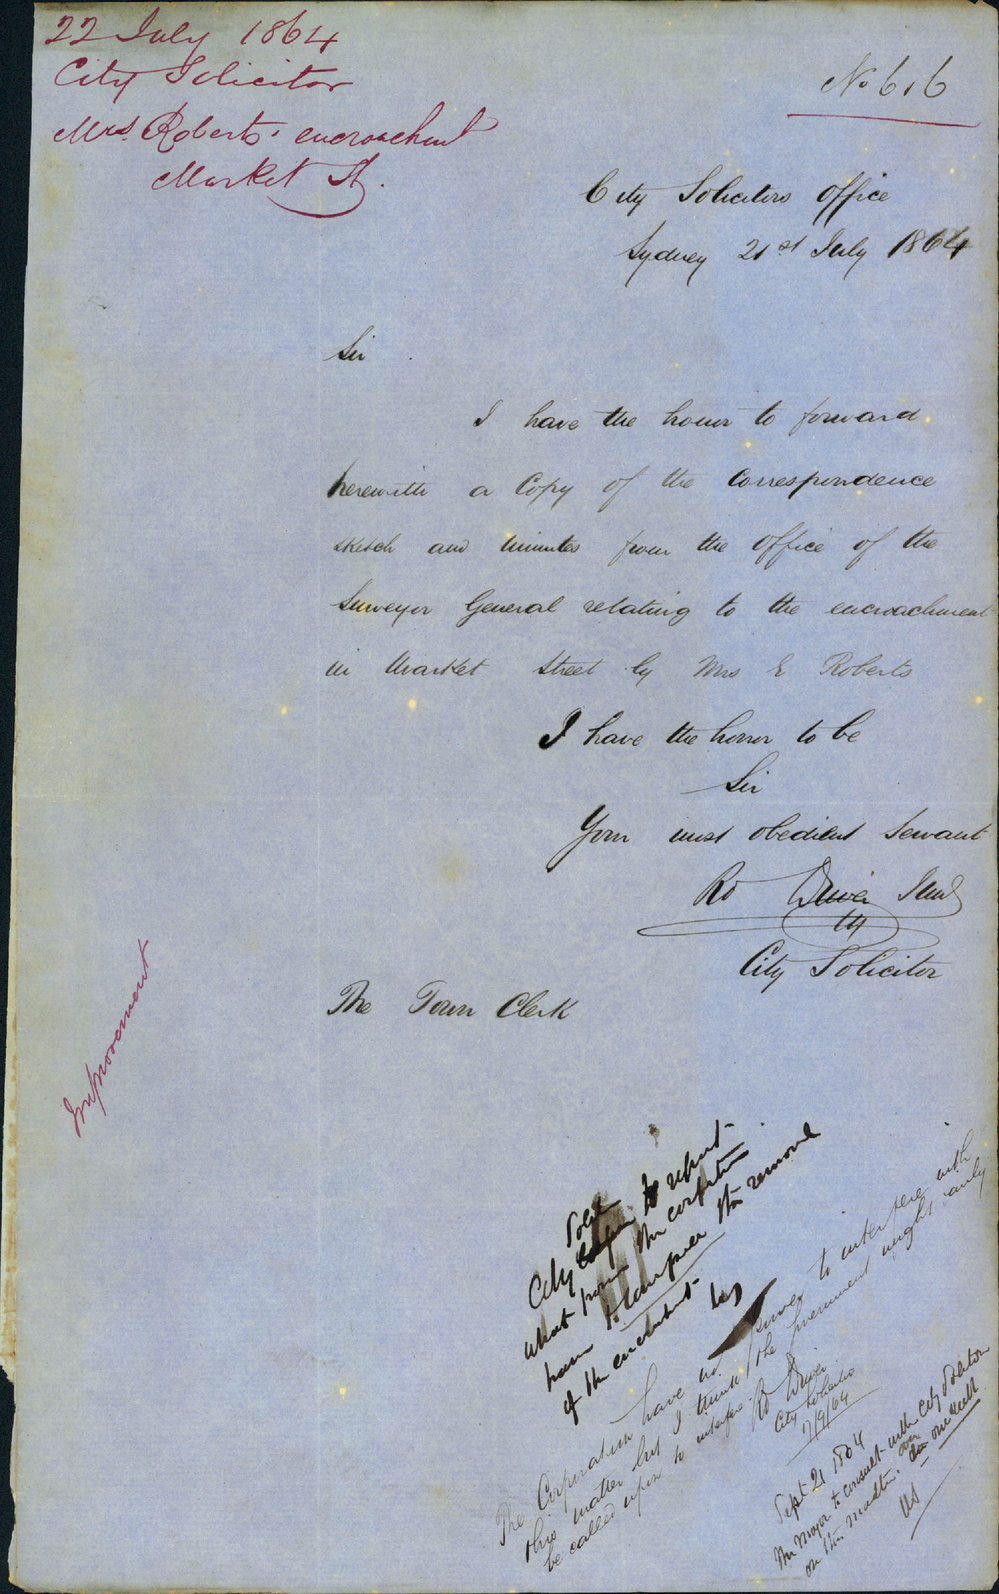 22 July 1864
City Solicitor
Mrs. Roberts' encroachmt
Market St.
No 616
City Solicitors Office
Sydney 21st July 1864
Sir
I have the honor to forward
herewith a Copy of the Correspondence
sketch and minutes from the Office of the
Surveyor General relating to the encroachment
in Market Street by Mrs E Roberts
I have the honor to be
Sir
Your most obedient Servant
Rd Driver Junr
City Solicitor
The Town Clerk
Improvement
City Solr to report
what power the corporation
have to compel the removal
of the encroachmt
The Corporation have no power to interfere with
this matter but I think the Government might easily
be called upon to interfere.
Rd Driver
City Solicitor
17/9/64
Sept 21 1864
The Mayor to consult with City Solicitor
on this matter.
one week